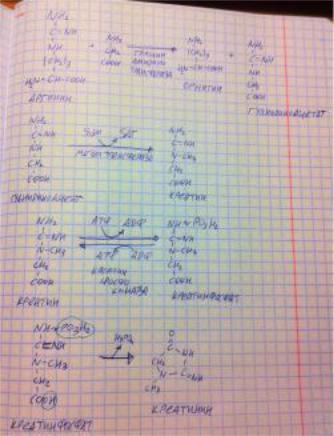 NH₂
C=NH
NH
(CH₂)₃
H₂N-CH-COOH
АРГИНИН
+
NH₂
CH₂
COOH
ГЛИЦИН
NH₂
(CH₂)₃
H₂N-CH-COOH
ОРНИТИН
+
NH₂
C=NH
NH
CH₂
COOH
ГУАНИДИНОАЦЕТАТ
NH₂
C=NH
NH
CH₂
COOH
SAM SAГ
МЕТИЛТРАНСФЕРАЗА
NH₂
C=NH
N-CH₃
CH₂
COOH
КРЕАТИН
NH₂
C=NH
N-CH₃
CH₂
COOH
КРЕАТИН
АТФ АДФ
АТФ АДФ
КРЕАТИН
КИНАЗА
NH~PO₃H₂
C=NH
N-CH₃
CH₂
COOH
КРЕАТИНФОСФАТ
NH~PO₃H₂
C=NH
N-CH₃
CH₂
COOH
КРЕАТИНФОСФАТ
H₃PO₄
O
C
NH
CH₂
C=NH
N
CH₃
КРЕАТИНИН